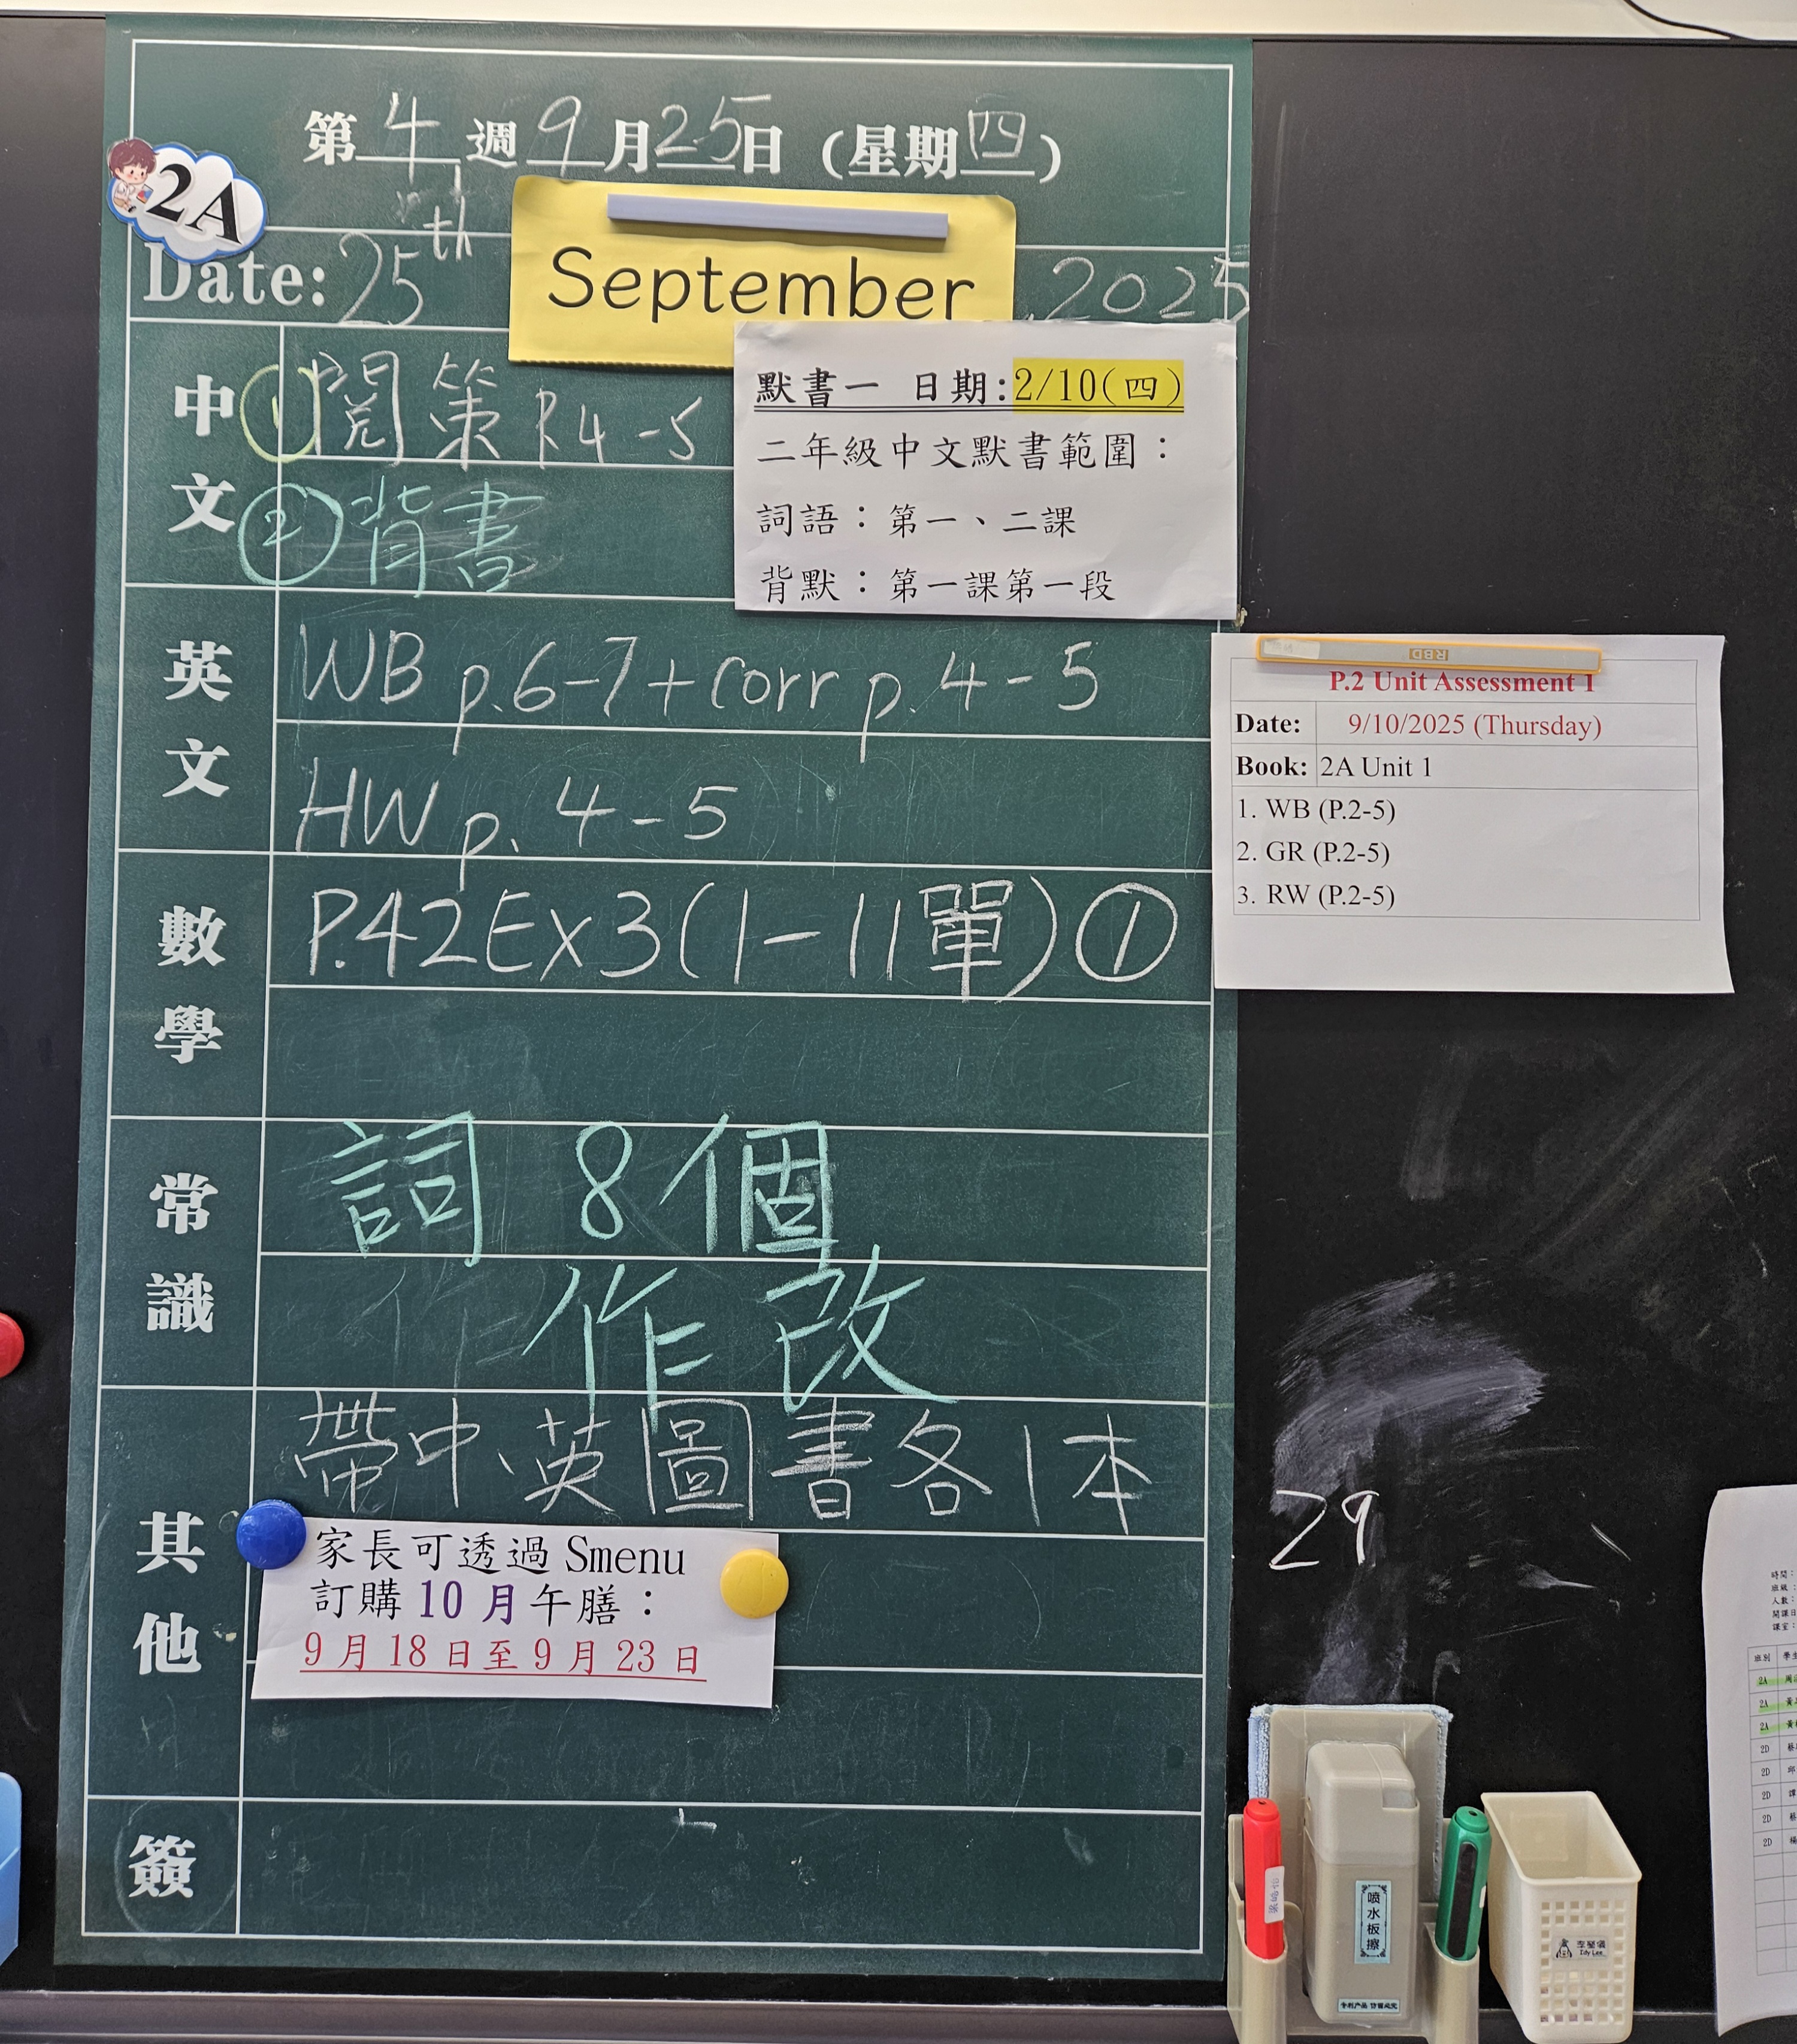 第4週9月25日(星期四)
2A
Date: 25th September, 2025
中文
① 閱策 P.4-5
② 背書
默書一 日期:2/10(四)
二年級中文默書範圍：
詞語：第一、二課
背默：第一課第一段
英文
WB p.6-7+corr p.4-5
HW p. 4-5
P.2 Unit Assessment 1
Date: 9/10/2025 (Thursday)
Book: 2A Unit 1
1. WB (P.2-5)
2. GR (P.2-5)
3. RW (P.2-5)
數學
P.42Ex3(1-11單)①
常識
詞 8個
作改
其他
帶中、英圖書各1本
家長可透過 Smenu
訂購 10 月午膳：
9 月 18 日至 9 月 23 日
29
簽
RBD
喷水板擦
李
Idy Lee
時間：
班級：
人數：
課室：
班別 學生
2A
2A
2A
2D
2D
2D
2D
2D